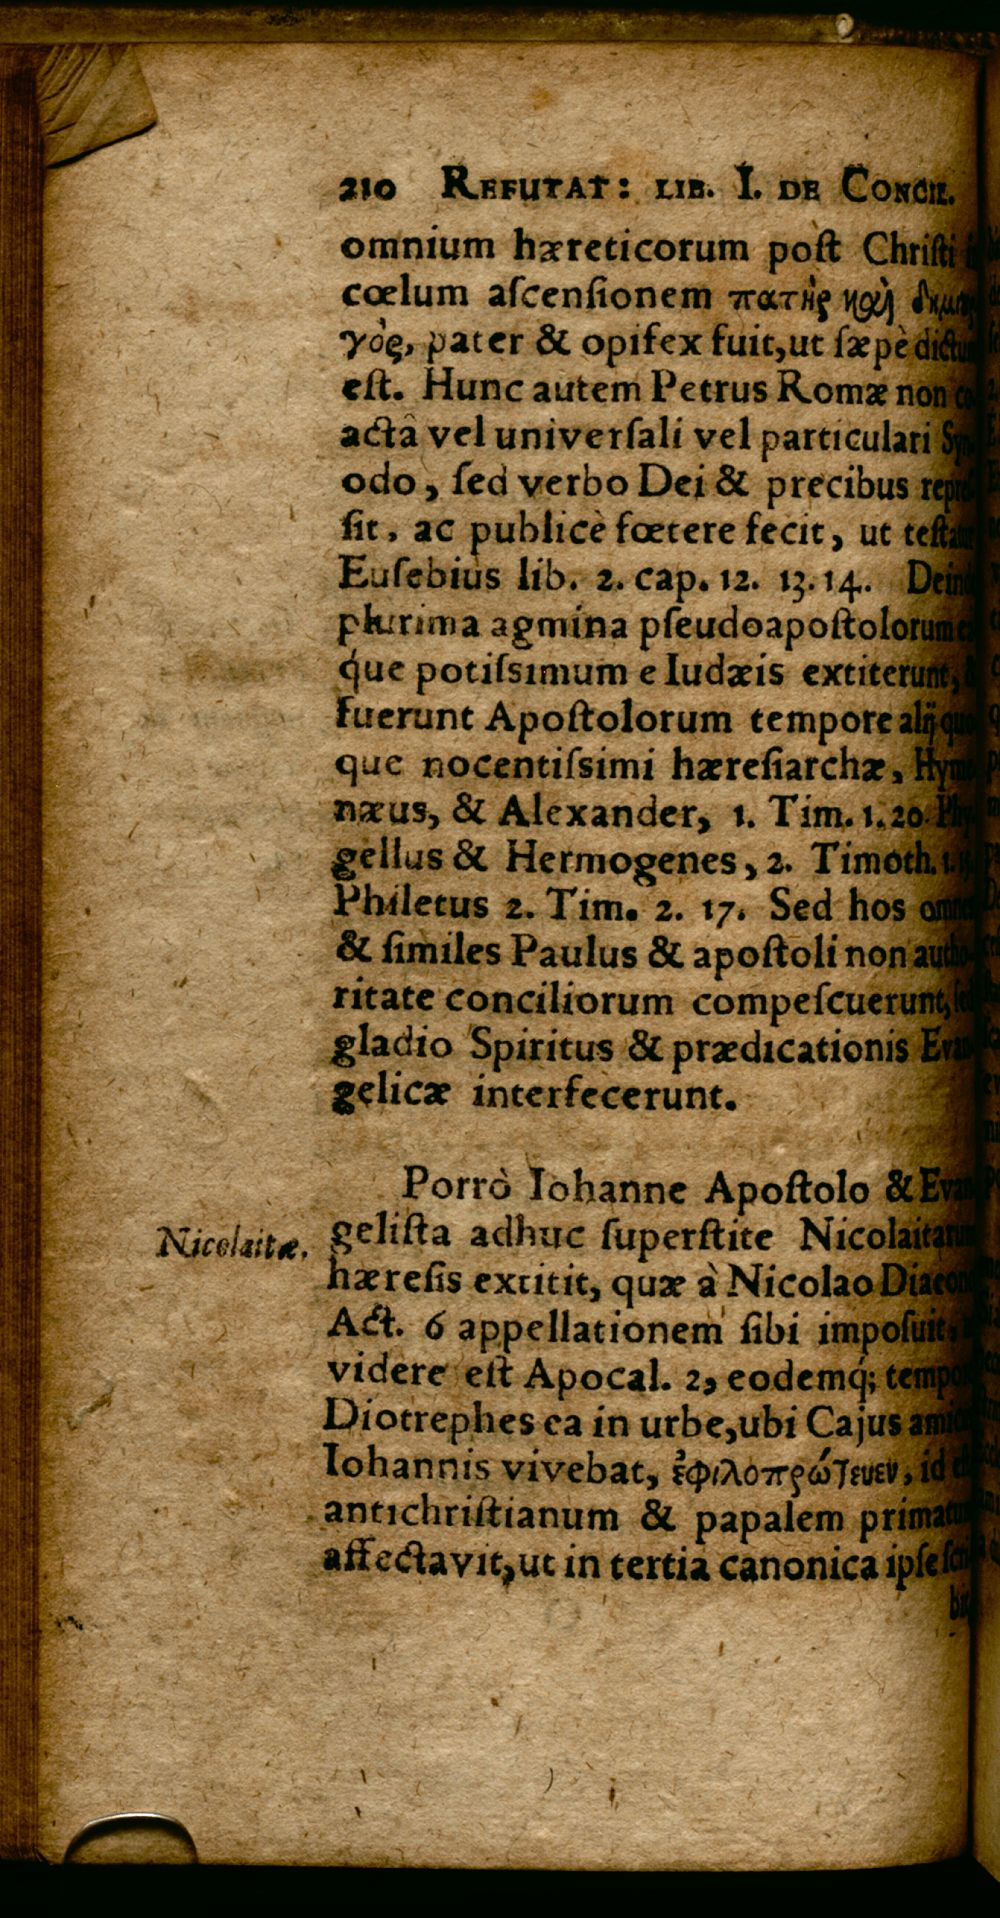 210 REFUTAT: LIB. I. DE CONCIL.
omnium hæreticorum poſt Chriſti
cœlum aſcenſionem πατὴρ καὶ
γὸς, pater & opifex fuit, ut ſæpè dictum
eſt. Hunc autem Petrus Romæ non co
actâ vel univerſali vel particulari Syn
odo, ſed verbo Dei & precibus repreſ
ſit, ac publicè fœtere fecit, ut teſtatur
Euſebius lib. 2. cap. 12. 13. 14. Deinde
plurima agmina pſeudoapoſtolorum ea
q́ue potiſsimum e Iudæis extiterunt, &
fuerunt Apoſtolorum tempore alij quo
que nocentiſsimi hæreſiarchæ, Hyme
næus, & Alexander, 1. Tim. 1. 20. Phy
gellus & Hermogenes, 2. Timoth. 1.
Philetus 2. Tim. 2. 17. Sed hos omnes
& ſimiles Paulus & apoſtoli non autho-
ritate conciliorum compeſcuerunt, ſed
gladio Spiritus & prædicationis Evan
gelicæ interfecerunt.
Porrò Iohanne Apoſtolo & Evan
Nicolaitæ.
geliſta adhuc ſuperſtite Nicolaitarum
hæreſis extitit, quæ à Nicolao Diacono
Act. 6 appellationem ſibi impoſuit,
videre eſt Apocal. 2, eodemq́; tempore
Diotrephes ea in urbe, ubi Cajus amicus
Iohannis vivebat, ἐφιλοπρώτευεν, id eſt
antichriſtianum & papalem primatum
affectavit, ut in tertia canonica ipſe ſcri